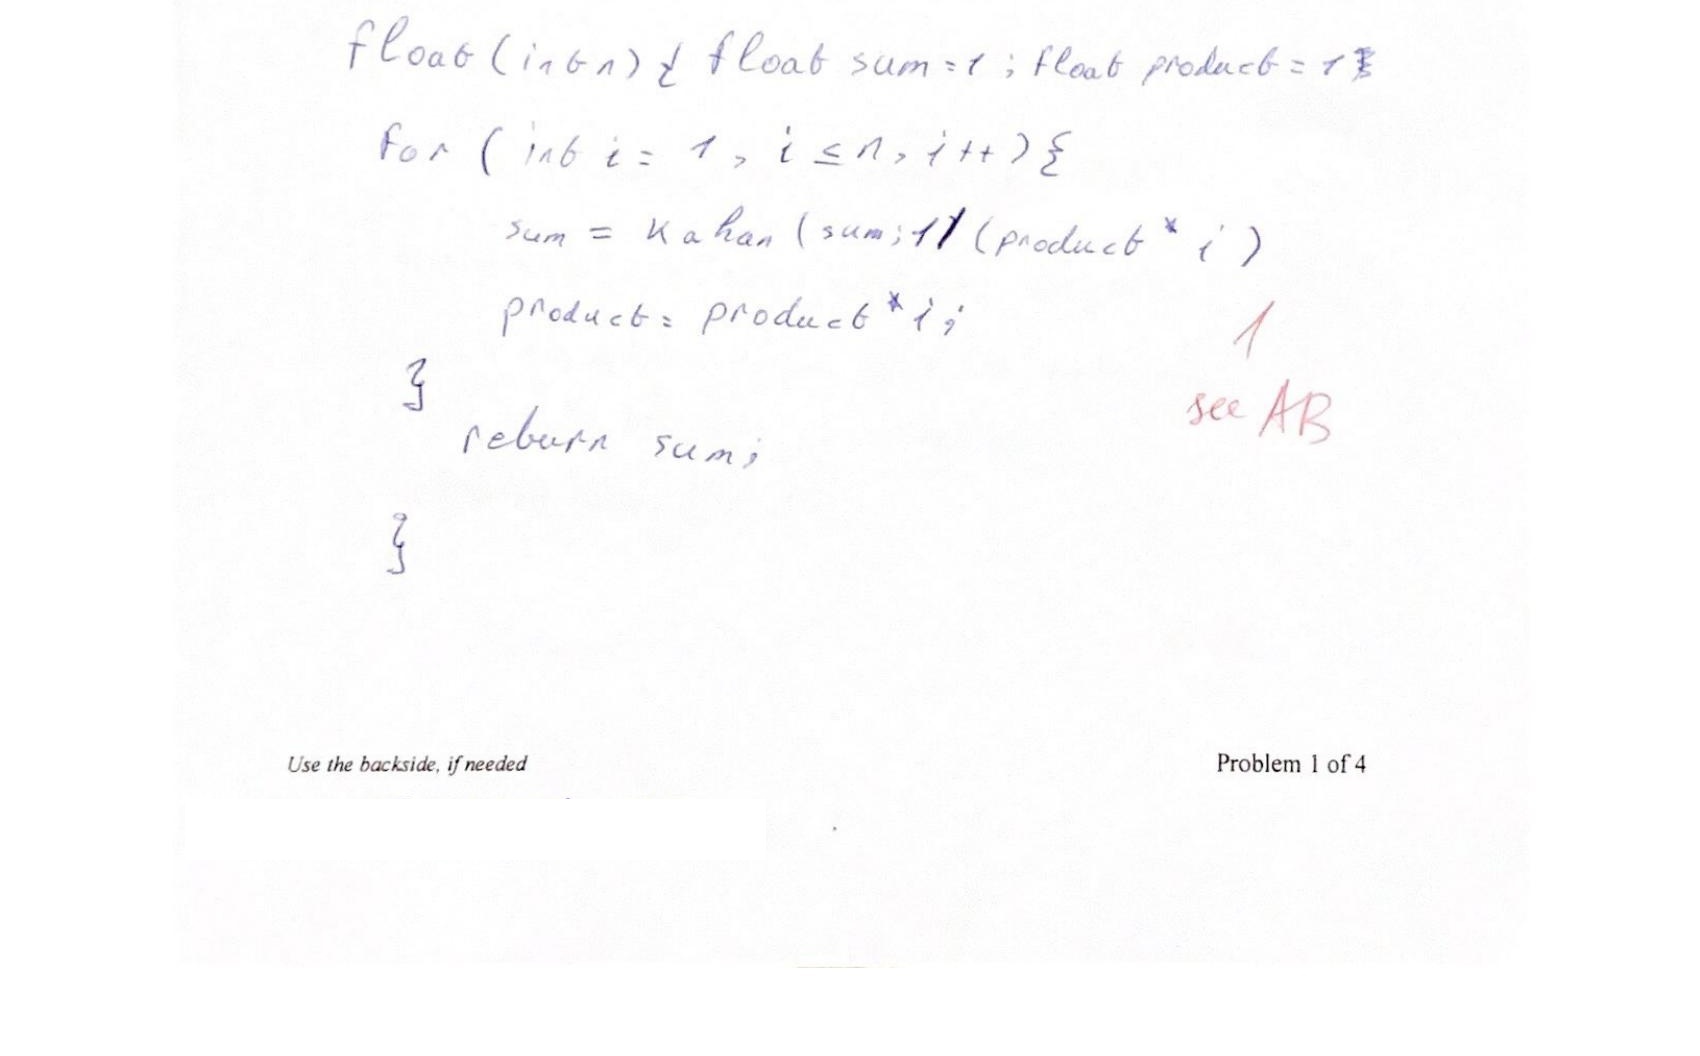 float (int n) { float sum = 1 ; float product = 1;
for ( int i = 1 , i ≤ n , i ++ ) {
sum = Kahan ( sum ; 1 / ( product * i )
product = product * i ;
}
return sum ;
}
1
see AB
Use the backside, if needed
Problem 1 of 4